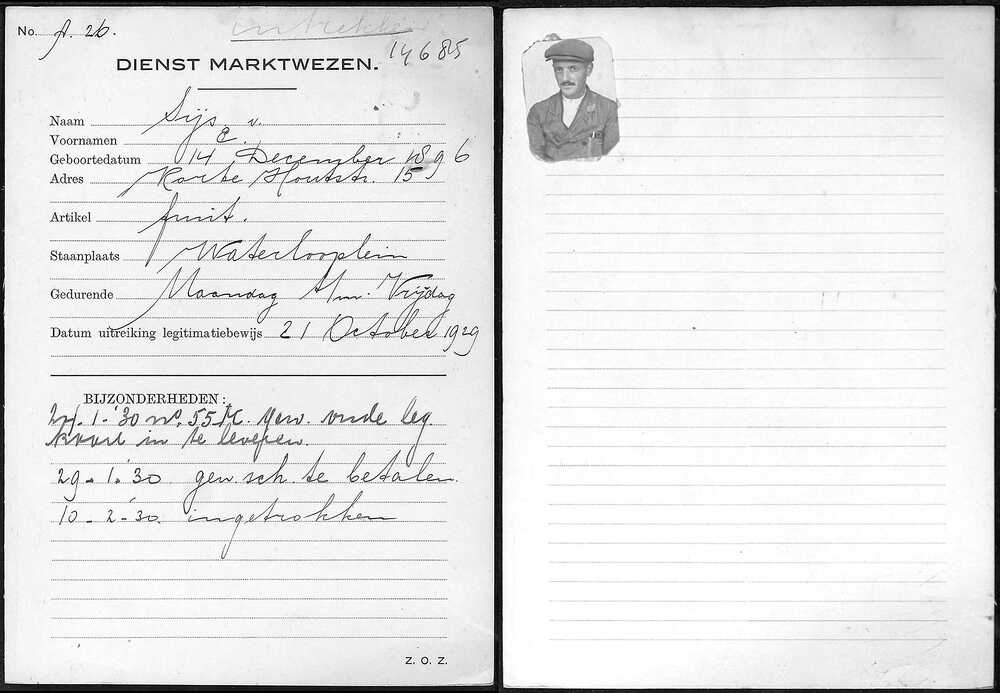 intrekken
No. A. 26.
14685
DIENST MARKTWEZEN.
Naam Sijs. v.
Voornamen E.
Geboortedatum 14 December 1896
Adres Korte Houtstr. 15
Artikel fruit.
Staanplaats Waterlooplein
Gedurende Maandag t/m. Vrijdag
Datum uitreiking legitimatiebewijs 21 October 1929
BIJZONDERHEDEN:
1-'30 no. 55 M. gew. oude leg.
kaart in te leveren.
29-1-'30 gew. sch. te betalen.
10-2-'30. ingetrokken
Z. O. Z.